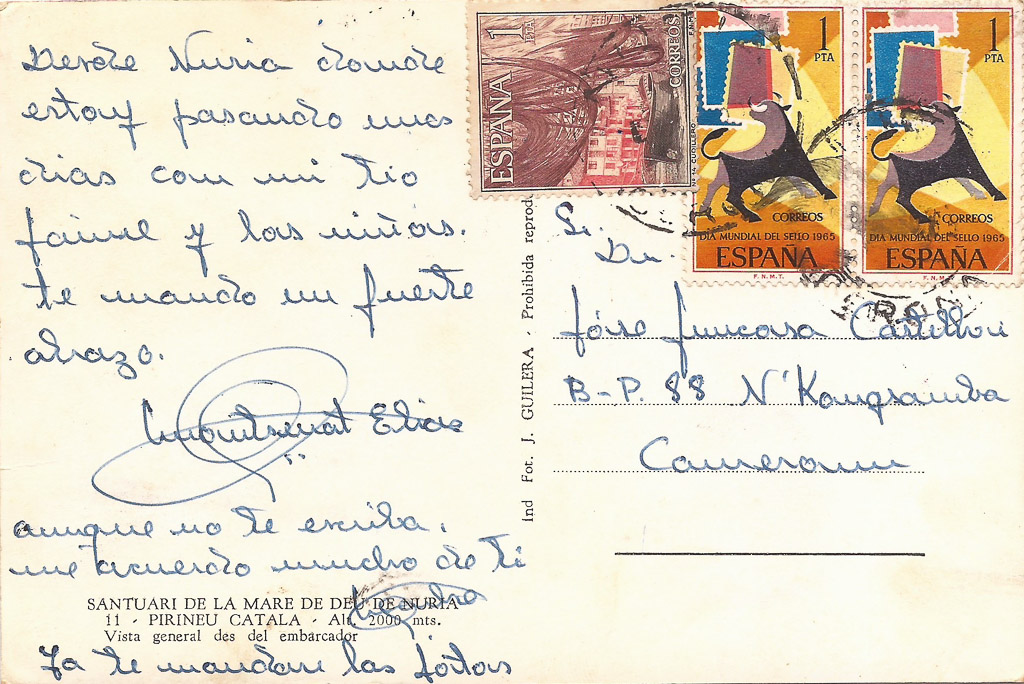 Desde Nuria donde
estoy pasando unos
dias con mi tio
jaime y las niñas.
te mando un fuerte
abrazo.
Montserrat Elias
aunque no te escriba,
me acuerdo mucho de ti
SANTUARI DE LA MARE DE DEU DE NURIA
11 - PIRINEU CATALA - Alt. 2000 mts.
Vista general des del embarcador
Ja te mandare las fotos
Ind Fot. J. GUILERA - Prohibida reprod
1 PTA
ESPAÑA
CORREOS
Nº 14 CUDILLERO
F.N.M
1 PTA
CORREOS
DIA MUNDIAL DEL SELLO 1965
ESPAÑA
F. N. M. T.
1 PTA
CORREOS
DIA MUNDIAL DEL SELLO 1965
ESPAÑA
F. N. M. T.
Sr.
Dn.
jose juncosa Castellvi
B-P. 88 N'Kongsamba
Cameroun